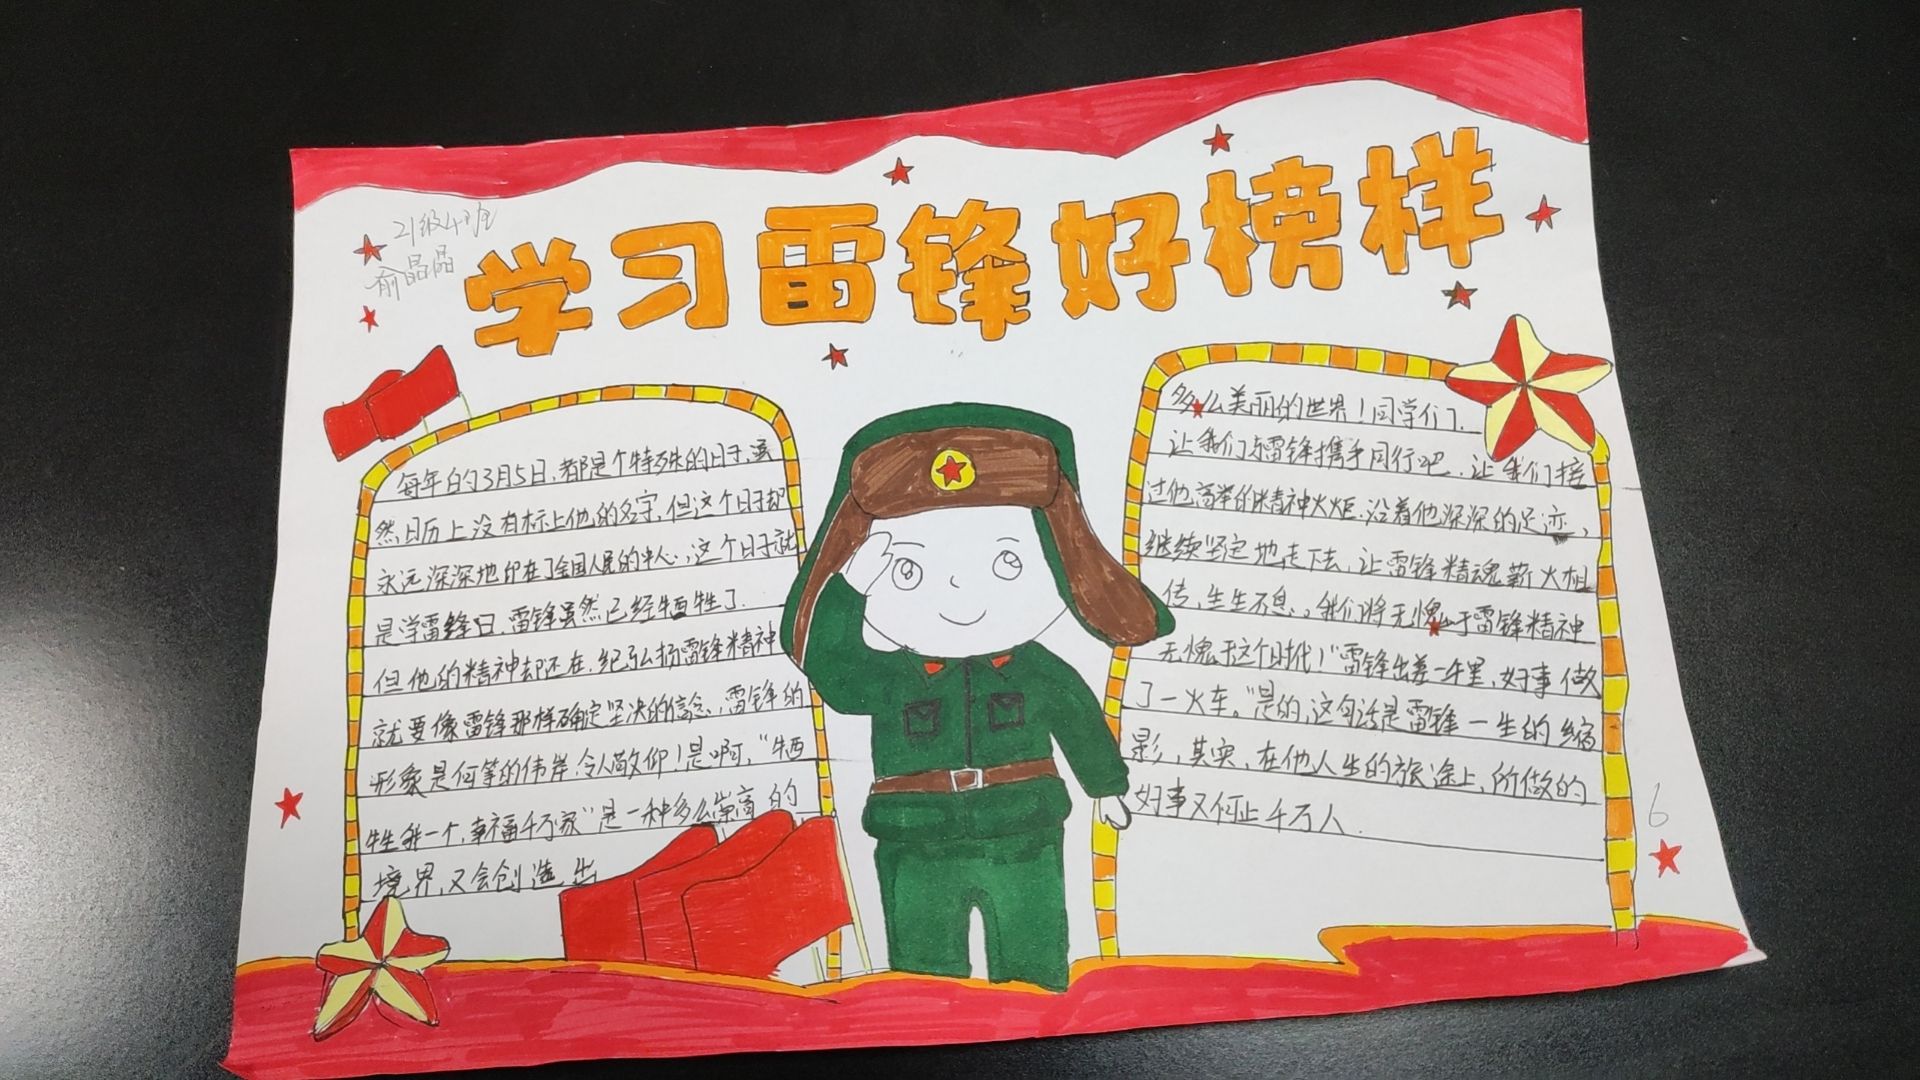 21级4班
俞晶晶
学习雷锋好榜样
每年的3月5日,都是个特殊的日子,虽
然日历上没有标上他的名字,但这个日子却
永远深深地印在了全国人民的中心,这个日子就
是学雷锋日,雷锋虽然已经牺牲了.
但他的精神却还在.纪弘扬雷锋精神
就要像雷锋那样确定坚决的信念,雷锋的
形象是何等的伟岸.令人敬仰!是啊,“牺
牲我一个,幸福千万家”是一种多么崇高的
境界,又会创造出
多么美丽的世界!同学们.
让我们与雷锋携手同行吧.让我们接
过他高举的精神火炬.沿着他深深的足迹,
继续坚定地走下去,让雷锋精魂薪火相
传,生生不息。我们将无愧于雷锋精神
无愧于这个时代!“雷锋出差一千里,好事做
了一火车。”是的,这句话是雷锋一生的缩
影,其实,在他人生的旅途上,所做的
好事又何止千万人.
6